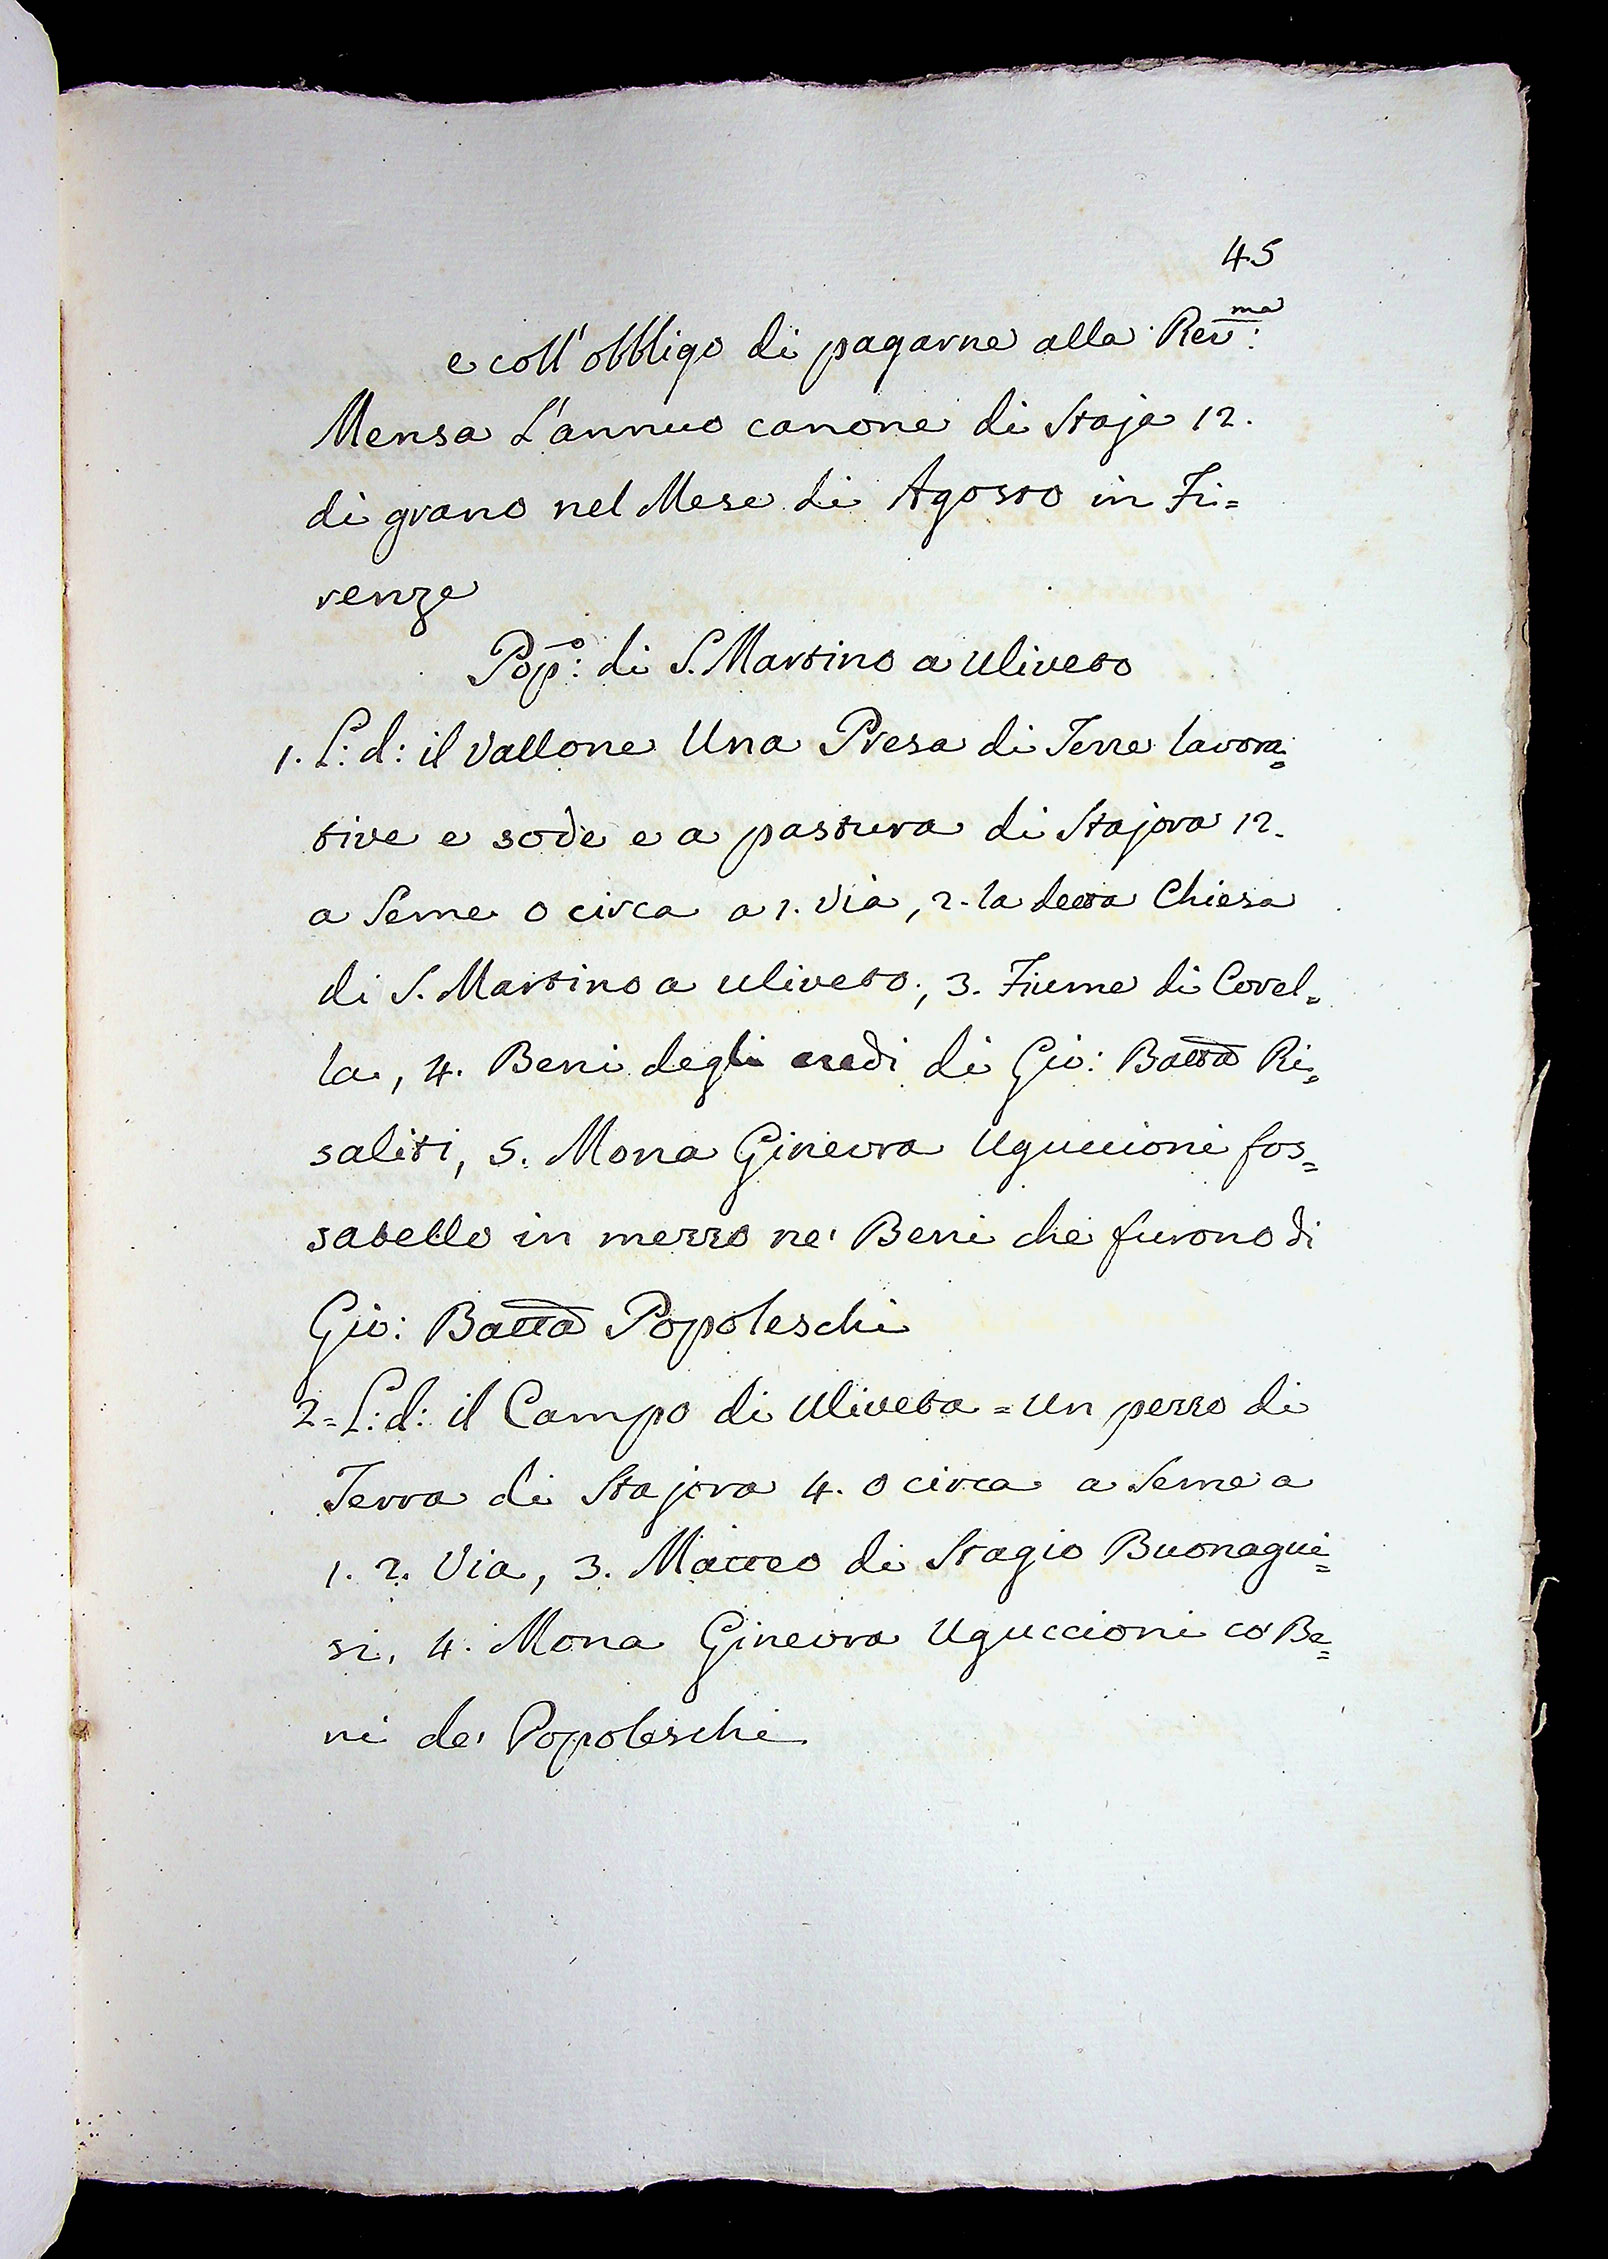 45
e coll'obbligo di pagarne alla Rev:ma
Mensa L'annuo canone di Staja 12.
di grano nel Mese di Agosto in Fi=
renze
Pop:o di S. Martino a Uliveto
1. L: d: il Vallone Una Presa di Terre lavora=
tive e sode e a pastura di Stajora 12.
a Seme o circa a 1. Via, 2. la detta Chiesa
di S. Martino a uliveto, 3. Fiume di Corel=
la, 4. Beni degli eredi di Gio: Batta Ri=
saliti, 5. Mona Ginevra Uguccioni fos=
satello in mezzo ne' Beni che furono di
Gio: Batta Popoleschi
2= L: d: il Campo di Uliveta = Un pezzo di
Terra di Stajora 4. o circa a Seme a
1. 2. Via, 3. Matteo di Stagio Buonagui=
si, 4. Mona Ginevra Uguccioni co' Be=
ni de' Popoleschi